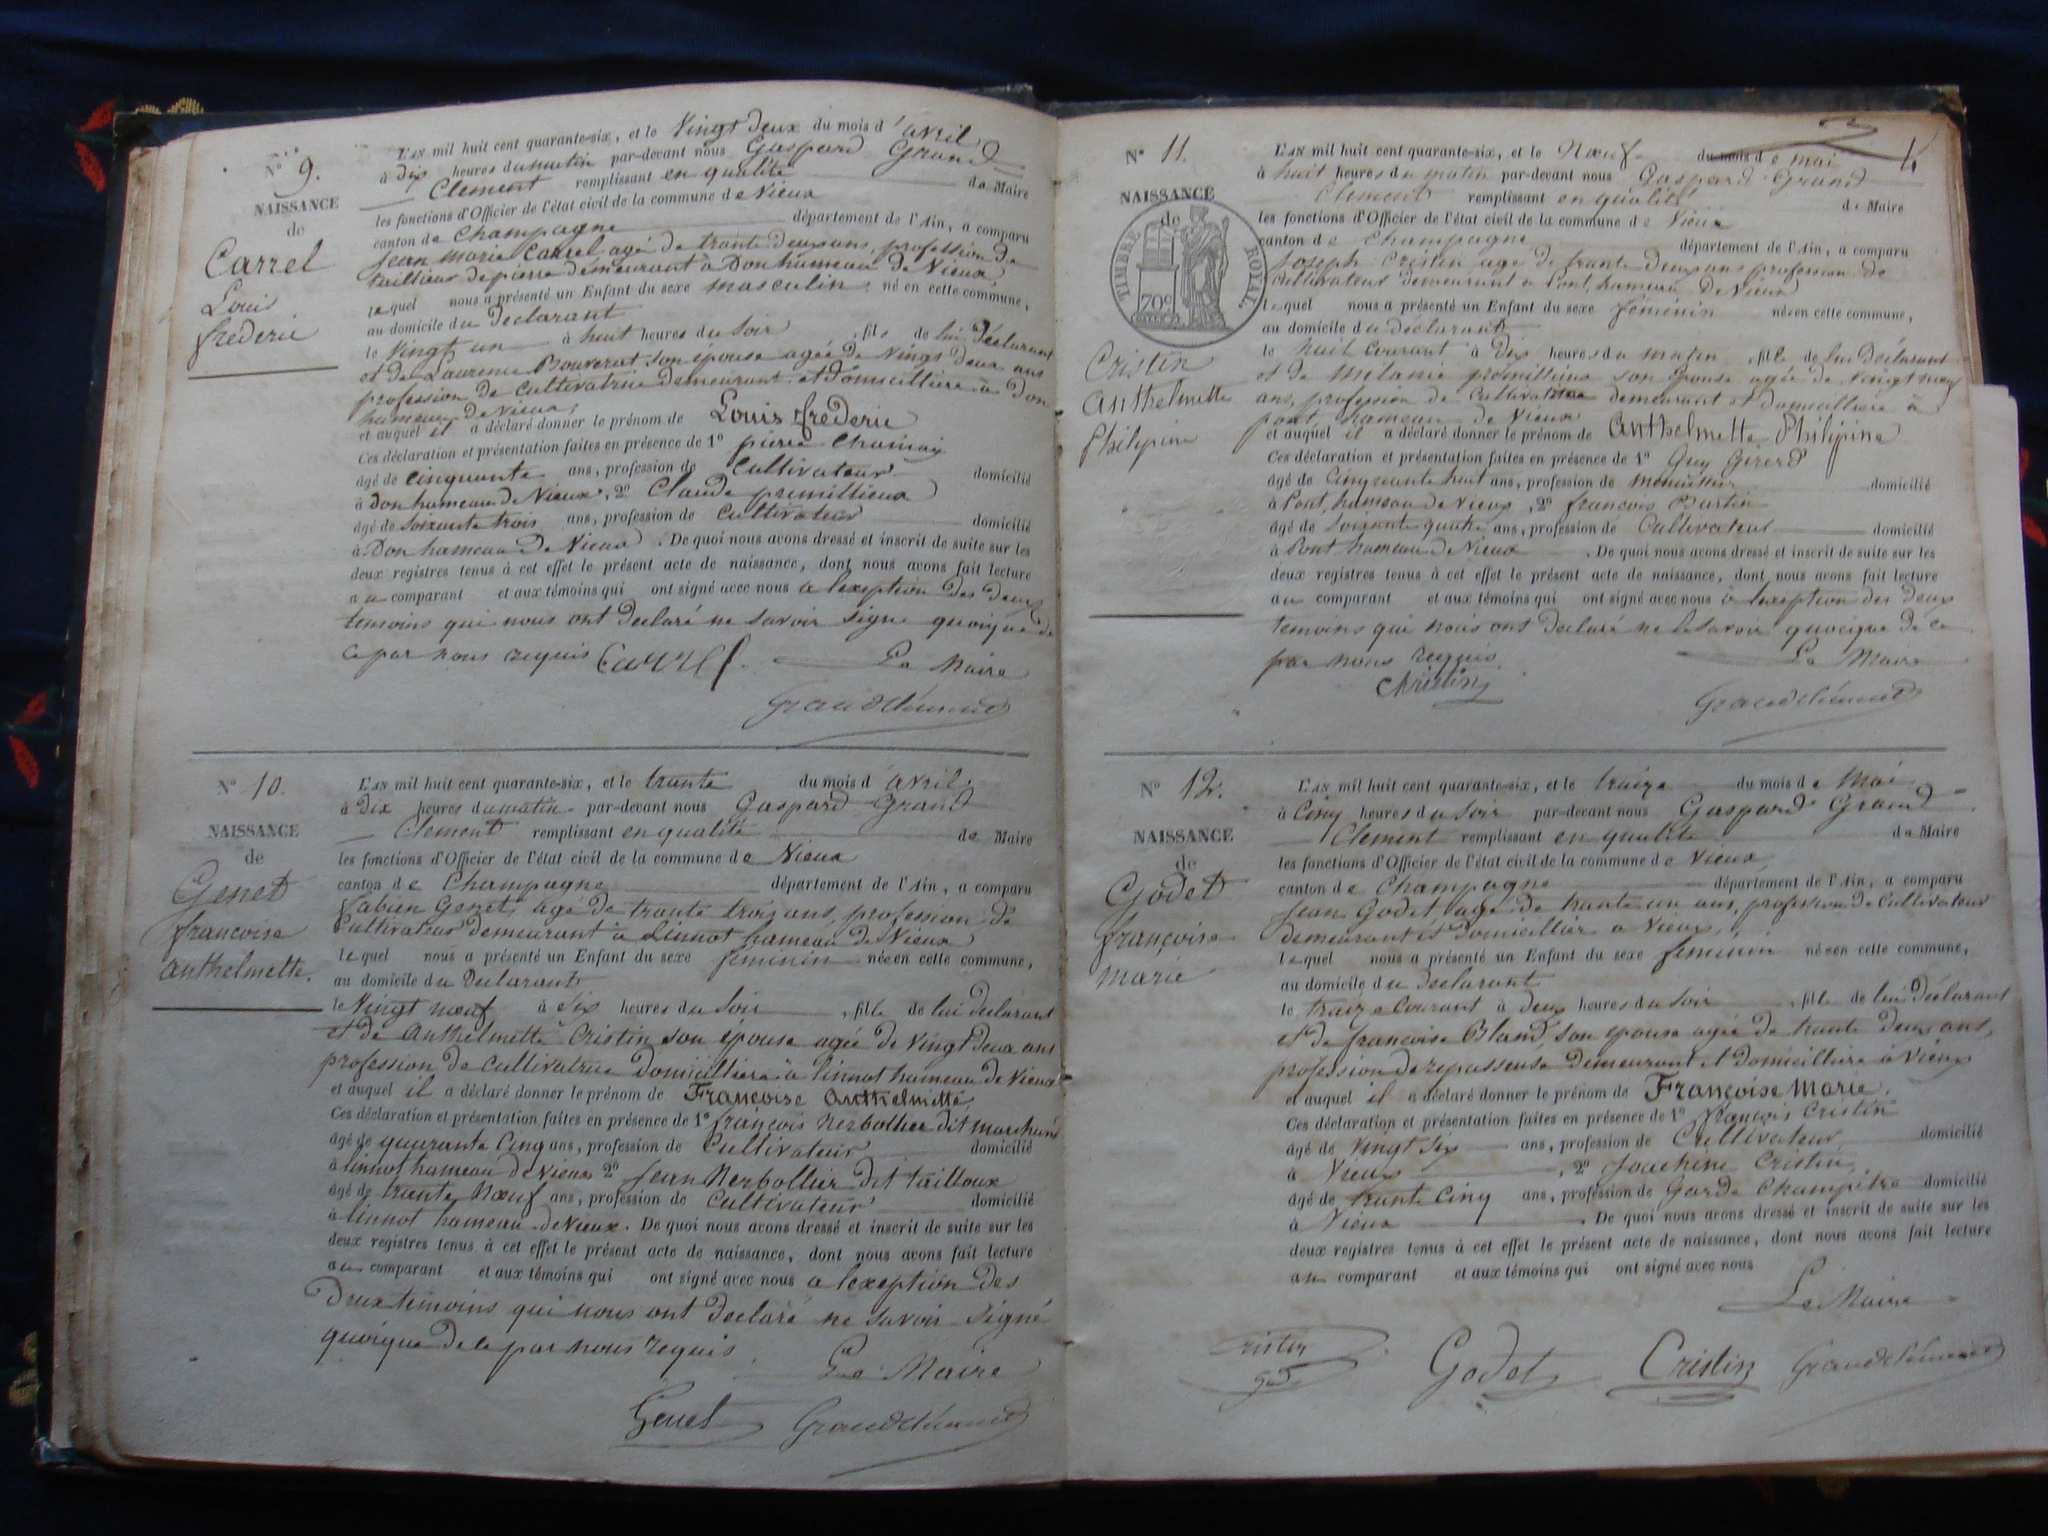 N° 9.
NAISSANCE
de
Carrel
Louis
frederic
L'AN mil huit cent quarante-six, et le Vingt deux du mois d'avril
à dix heures du matin par-devant nous Gaspard Grand
Clement remplissant en qualité de Maire
les fonctions d'Officier de l'état civil de la commune de Vieux
canton de Champagne département de l'Ain, a comparu
Jean marie Carrel agé de trante deux ans, profession de
tailleur de pierre demeurant à Don hameau de Vieux
lequel nous a présenté un Enfant du sexe masculin né en cette commune,
au domicile du Declarant
le Vingt un à huit heures du soir, fils de lui Déclarant
et de Laurence Bouverat son épouse agée de Vingt deux ans
profession de cultivatrice demeurant et domicilliere à don
hameau de Vieux,
et auquel il a déclaré donner le prénom de Louis frederic
Ces déclaration et présentation faites en présence de 1° pierre
âgé de cinquante ans, profession de Cultivateur domicilié
à don hameau de Vieux, 2° Claude premillieux
âgé de soixante trois ans, profession de cultivateur domicilié
à Don hameau de Vieux. De quoi nous avons dressé et inscrit de suite sur les
deux registres tenus à cet effet le présent acte de naissance, dont nous avons fait lecture
au comparant et aux témoins qui ont signé avec nous a lexeption des deux
temoins qui nous ont declaré ne savoir signe quoique de
ce par nous requis Carrel Le Maire
Grandclément
N° 10.
NAISSANCE
de
Genet
francoise
anthelmette.
L'AN mil huit cent quarante-six, et le trante du mois d'avril,
à dix heures du matin par-devant nous Gaspard Grand
Clement remplissant en qualité de Maire
les fonctions d'Officier de l'état civil de la commune de Vieux
canton de Champagne département de l'Ain, a comparu
fabien Genet, agé de trante trois ans, profession de
Cultivateur demeurant à Linnot hameau de Vieux
lequel nous a présenté un Enfant du sexe feminin née en cette commune,
au domicile du Declarant
le Vingt nœuf à six heures du soir, fille de lui declarant
et de anthelmette Cristin son épouse agée de Vingt deux ans
profession de cultivatrice domicilliere à linnot hameau de Vieux
et auquel il a déclaré donner le prénom de Françoise anthelmette
Ces déclaration et présentation faites en présence de 1° françois Nerbollier dit marchand
âgé de quarante Cinq ans, profession de Cultivateur domicilié
à linnot hameau de Vieux 2° Jean Nerbollier dit tailloux
âgé de trante Nœuf ans, profession de Cultivateur domicilié
à linnot hameau de Vieux. De quoi nous avons dressé et inscrit de suite sur les
deux registres tenus à cet effet le présent acte de naissance, dont nous avons fait lecture
au comparant et aux témoins qui ont signé avec nous a lexeption des
Deux temoins qui nous ont declaré ne savoir signé
quoique de ce par nous requis
Le Maire
Genet Grandclément
4
N° 11.
NAISSANCE
de
TIMBRE ROYAL
70c
Cristin
anthelmette
Philipine
L'AN mil huit cent quarante-six, et le Nœuf du mois de mai
à huit heures du matin par-devant nous Gaspard Grand
Clement remplissant en qualité de Maire
les fonctions d'Officier de l'état civil de la commune de Vieux
canton de Champagne département de l'Ain, a comparu
Joseph Cristin agé de trante deux ans profession de
Cultivateur demeurant a Pont, hameau de Vieux
lequel nous a présenté un Enfant du sexe féminin née en cette commune,
au domicile du declarant
le huit courant à dix heures du matin, fille de lui Déclarant
et de Melanie prémillieux son épouse agée de Vingt nœuf
ans, profession de Cultivatrice demeurant et domicilliere à
pont hameau de Vieux
et auquel il a déclaré donner le prénom de Anthelmette Philipine
Ces déclaration et présentation faites en présence de 1° Guy Girerd
âgé de cinquante huit ans, profession de domicilié
à Pont, hameau de Vieux, 2° françois Burtin
âgé de soixante quatre ans, profession de Cultivateur domicilié
à Pont hameau de Vieux. De quoi nous avons dressé et inscrit de suite sur les
deux registres tenus à cet effet le présent acte de naissance, dont nous avons fait lecture
au comparant et aux témoins qui ont signé avec nous a lexeption des deux
temoins qui nous ont declaré ne le savoir quoique de ce
par nous requis. Le Maire
Christin Grandclément
N° 12.
NAISSANCE
de
Godet
françoise
marie
L'AN mil huit cent quarante-six, et le traize du mois de Mai
à Cinq heures du soir par-devant nous Gaspard Grand
Clement remplissant en qualité de Maire
les fonctions d'Officier de l'état civil de la commune de Vieux
canton de Champagne département de l'Ain, a comparu
Jean Godet agé de trante un ans, profession de Cultivateur
demeurant et domicillier a Vieux,
lequel nous a présenté un Enfant du sexe feminin née en cette commune,
au domicile du declarant
le traize Courant à deux heures du soir, fille de lui Déclarant
et de francoise Bland, son epouse agée de trante deux ans,
profession de repasseuse demeurant et domicilliere à Vieux
et auquel il a déclaré donner le prénom de Françoise Marie.
Ces déclaration et présentation faites en présence de 1° François Cristin
âgé de Vingt six ans, profession de Cultivateur domicilié
à Vieux, 2° Joachine Cristin
âgé de trante Cinq ans, profession de Garde Champêtre domicilié
à Vieux. De quoi nous avons dressé et inscrit de suite sur les
deux registres tenus à cet effet le présent acte de naissance, dont nous avons fait lecture
au comparant et aux témoins qui ont signé avec nous
Le Maire
Cristin Godet Cristin Grandclément